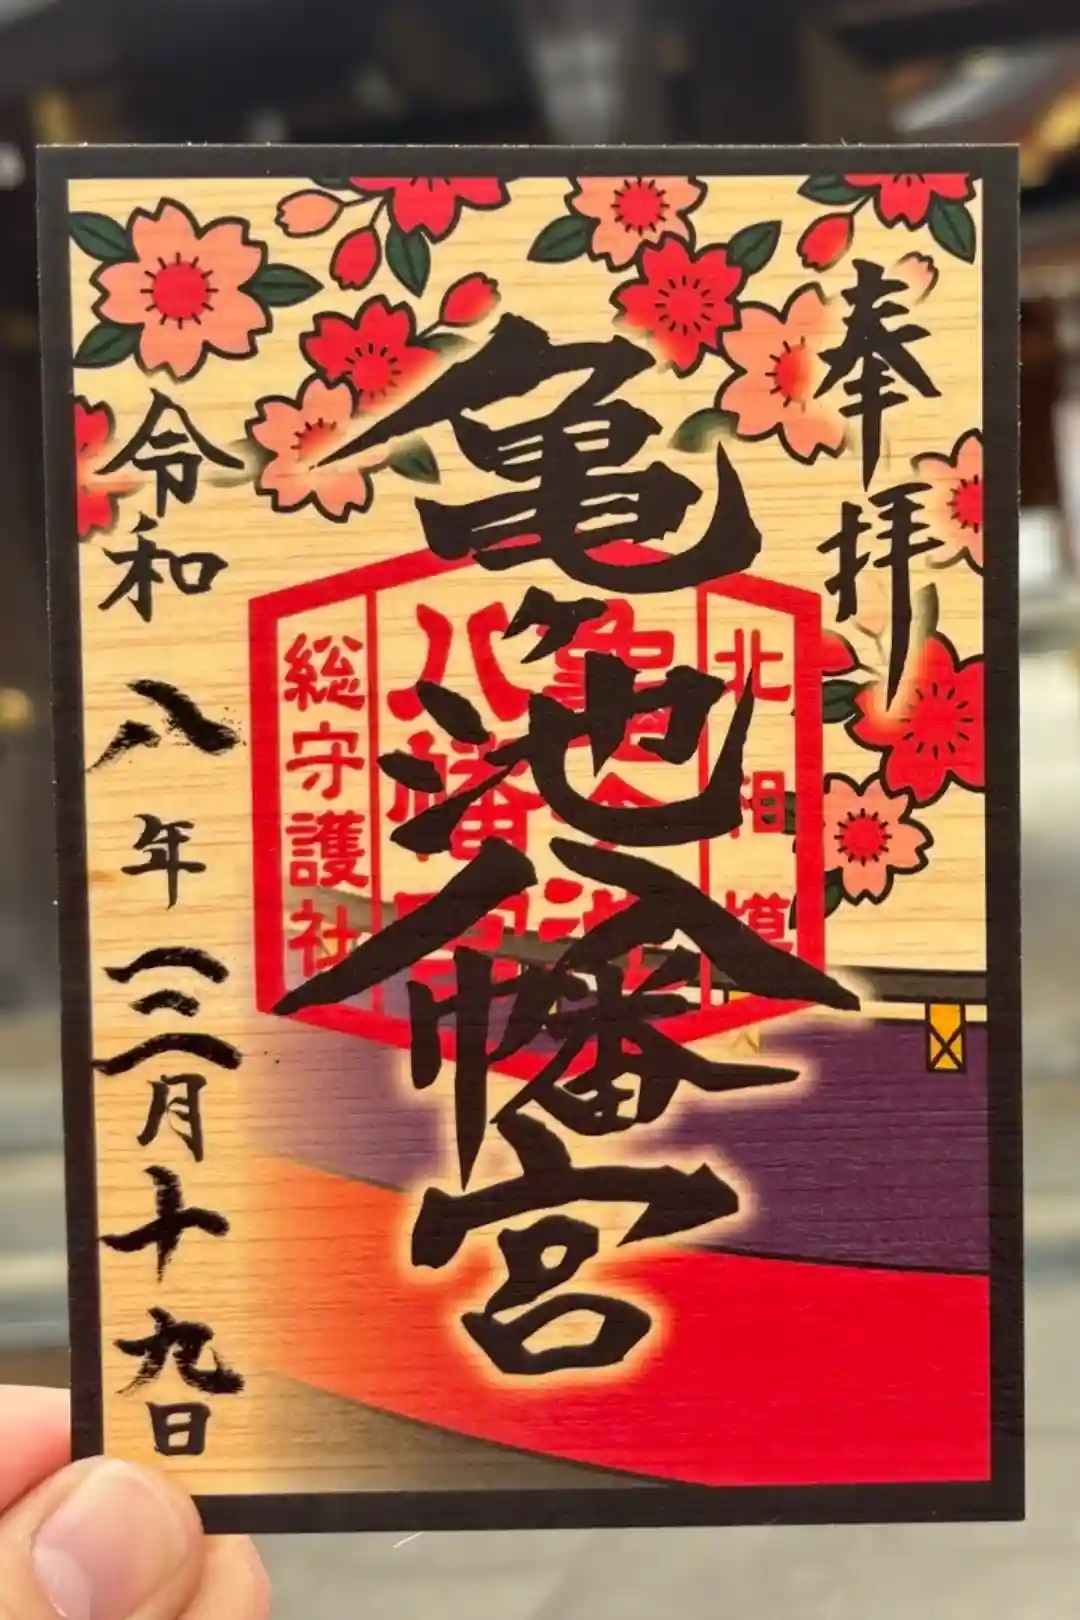 奉拝
亀ヶ池八幡宮
北相模
龜ケ池
八幡宮
総守護社
令和八年三月十九日